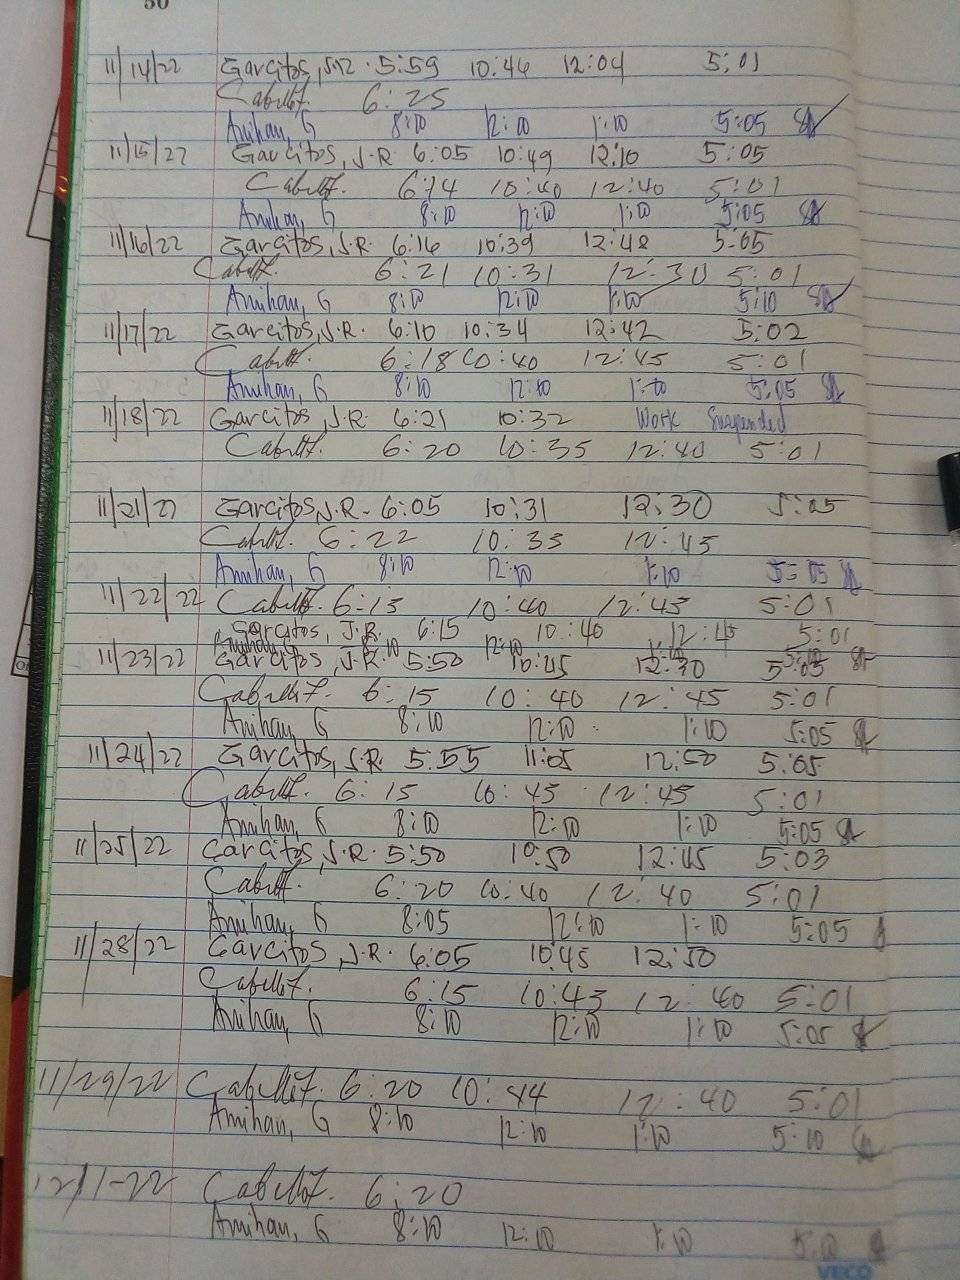 50
11/14/22 Garcitos, J.R. 5:59 10:46 12:04 5:01
Cabillof. 6:25
Amihan, G 8:10 12:10 1:10 5:05
11/15/22 Garcitos, J.R 6:05 10:49 12:10 5:05
6:14 10:40 12:40 5:01
Amihan, G 8:10 12:10 1:10 5:05
11/16/22 Garcitos, J.R. 6:16 10:39 12:48 5:05
6:21 10:31 12:30 5:01
Amihan, G 8:10 12:10 1:10 5:10
11/17/22 Garcitos, J.R. 6:10 10:34 12:42 5:02
6:18 10:40 12:45 5:01
Amihan, G 8:10 12:10 1:10 5:05
11/18/22 Garcitos, J.R. 6:21 10:32 Work Suspended
6:20 10:35 12:40 5:01
11/21/22 Garcitos, J.R. 6:05 10:31 12:30 5:05
6:22 10:33 12:45
Amihan, G 8:10 12:10 1:10 5:05
11/22/22 6:15 10:40 12:45 5:01
Garcitos, J.R. 6:15 10:40 12:45 5:01
Amihan, G 8:10 12:10 1:10
11/23/22 Garcitos, J.R. 5:50 10:45 12:30 5:05
6:15 10:40 12:45 5:01
Amihan, G 8:10 12:10 1:10 5:05
11/24/22 Garcitos, J.R. 5:55 11:05 12:50 5:05
6:15 10:45 12:45 5:01
Amihan, G 8:10 12:10 1:10 5:05
11/25/22 Garcitos, J.R. 5:50 10:50 12:45 5:03
6:20 10:40 12:40 5:01
Amihan, G 8:05 12:10 1:10 5:05
11/28/22 Garcitos, J.R. 6:05 10:45 12:50
6:15 10:43 12:40 5:01
Amihan, G 8:10 12:10 1:10 5:05
11/29/22 6:20 10:44 12:40 5:01
Amihan, G 8:10 12:10 1:10 5:10
12/1-22 6:20
Amihan, G 8:10 12:10 1:10 5:10
VECO